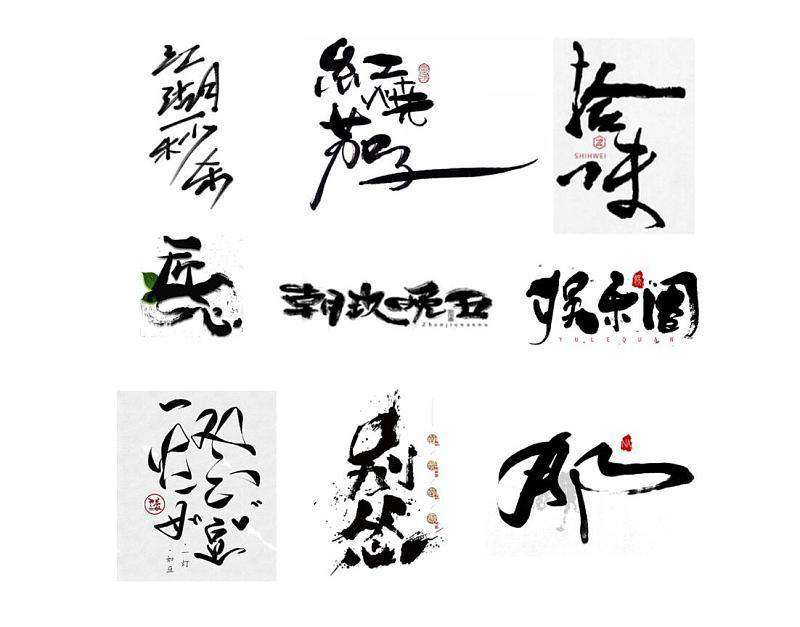 江湖
秒杀
紅燒
茄子
拾味
SHIHWEI
匠心
朝玖晚五
Zhaojiuwanwu
娱乐圈
YULEQUAN
一灯如
豆
·一灯
·如豆
别怂
那